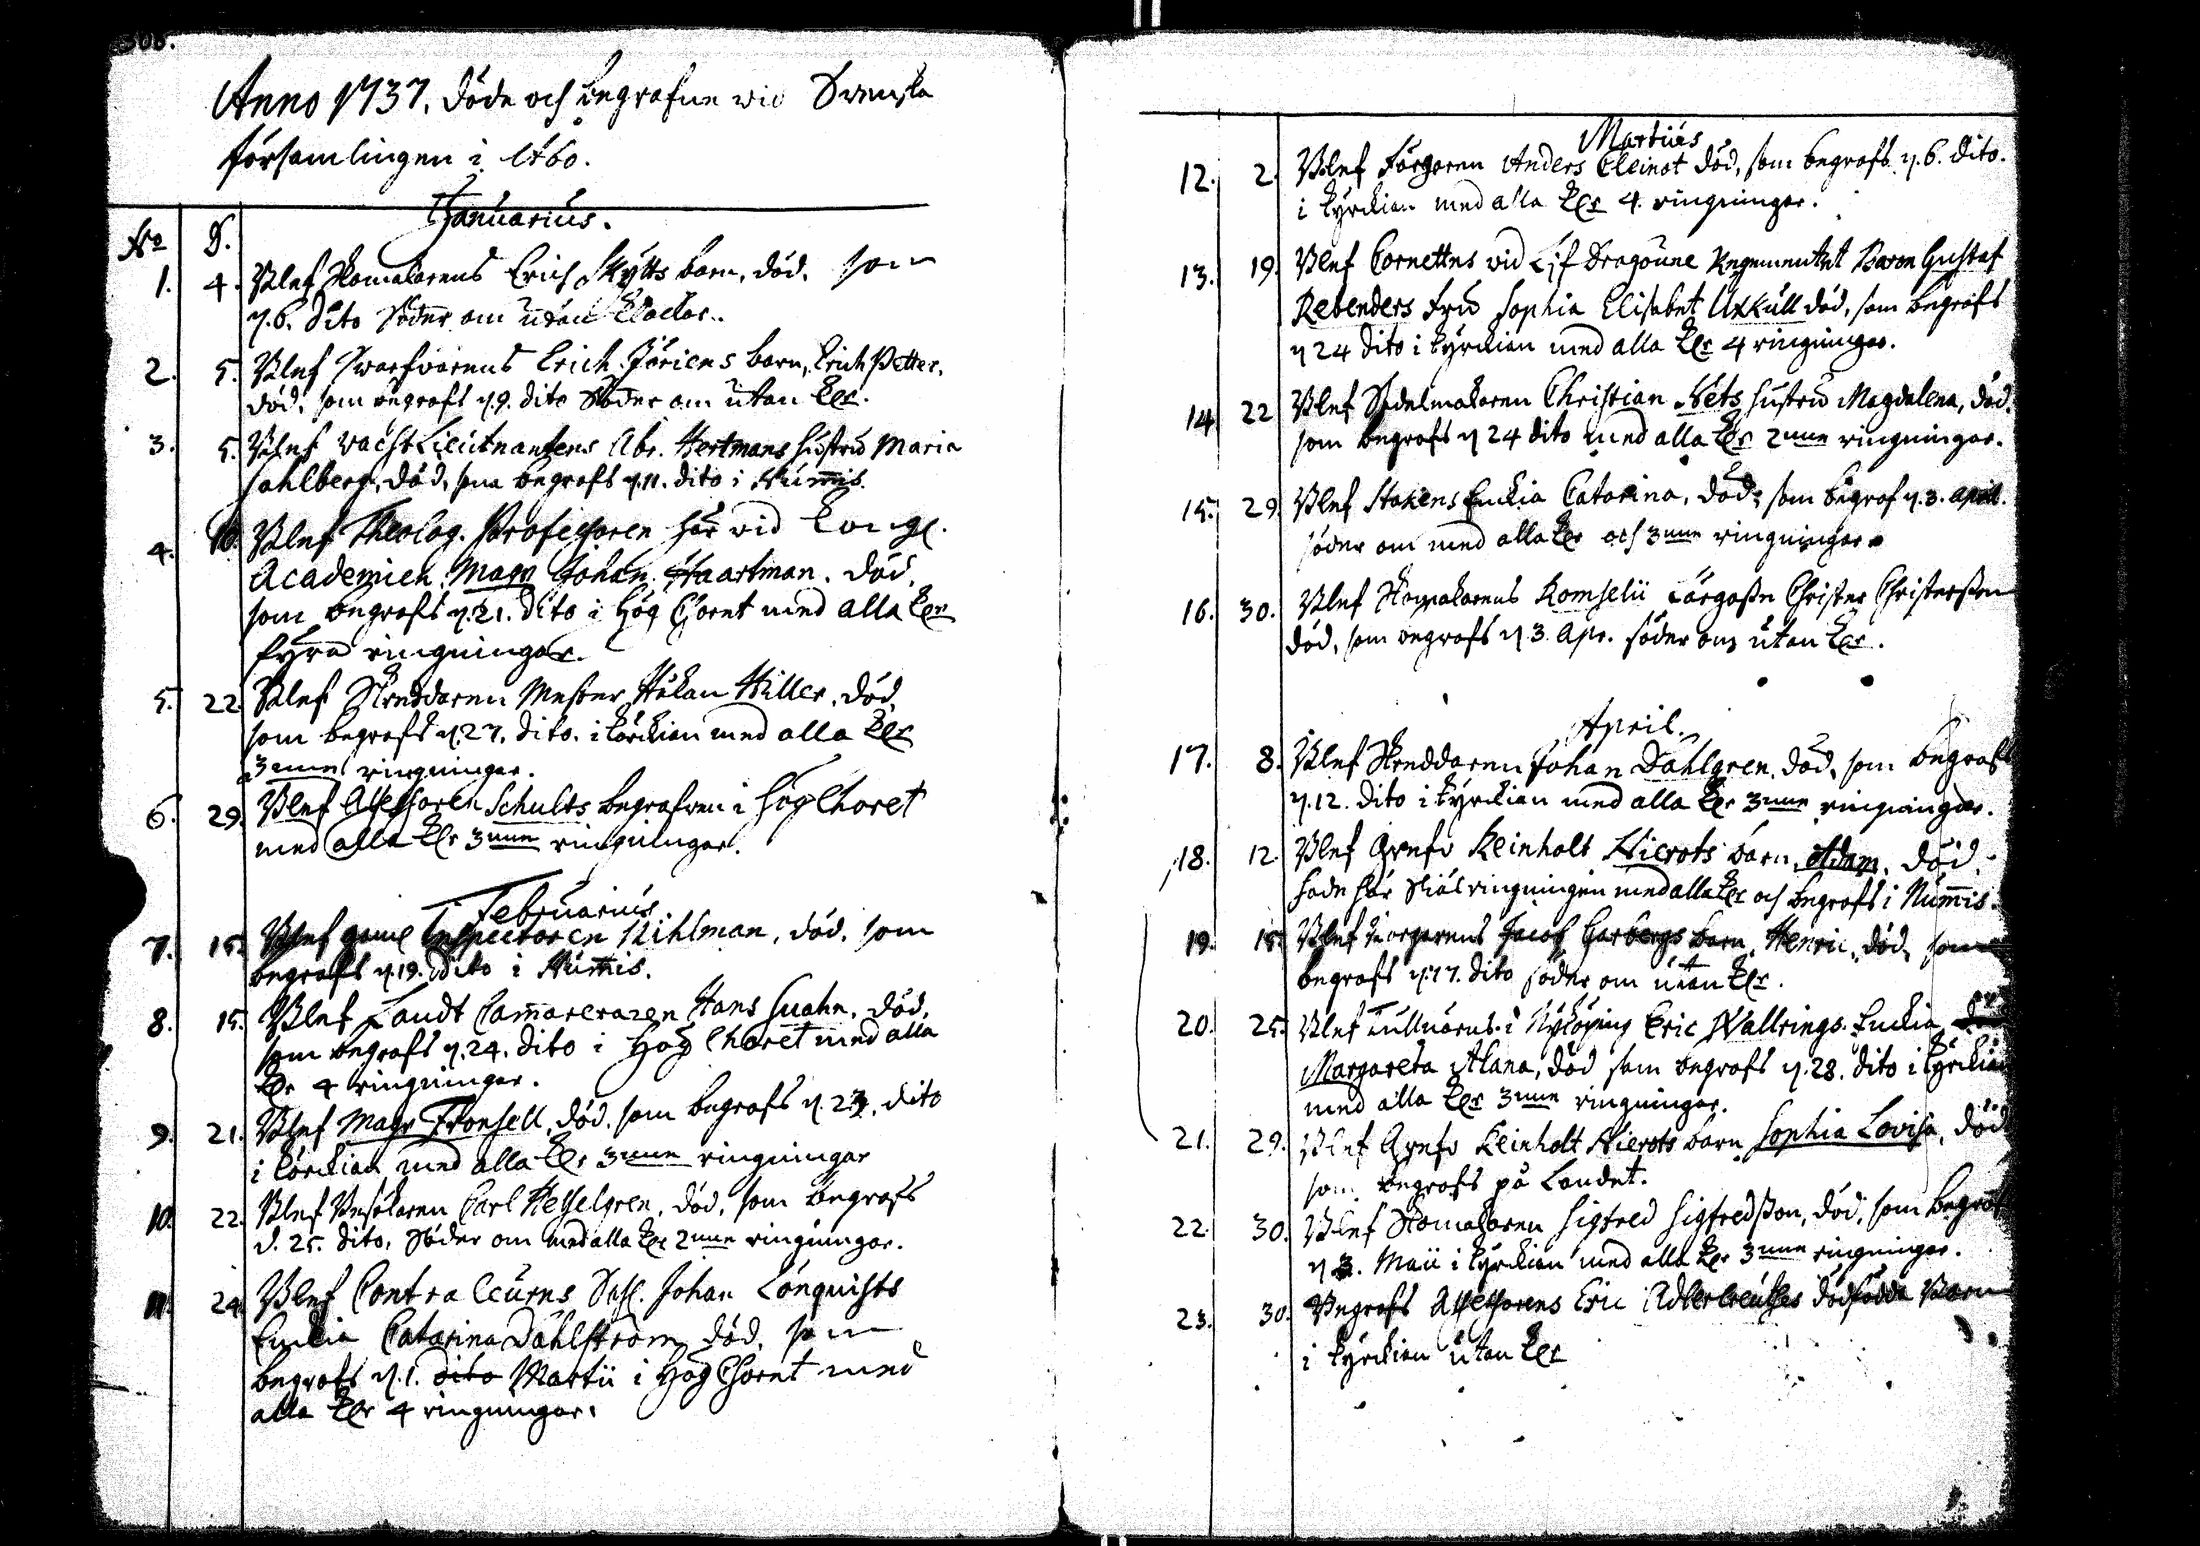 308.
Anno 1737. döde och begrafne vid Svenska
församlingen i Åbo.
Januarius.
No D.
1. 4. Blef Skomakarens Erich Skytts barn, död, som
d. 6. dito Söder om utan klockor.
2. 5. Blef Swarfvarens Erich Jöriens barn, Erich Petter,
död, som begrofs d. 9. dito Söder om utan klr.
3. 5. Blef Vacht Lieutnantens Abr. Hertmans hustru Maria
Sahlberg, död, som begrofs d. 11. dito i Nummis.
4. 10. Blef Theolog. Professoren här vid Kongl.
Academien Magr Johan Haartman, död,
som begrofs d. 21. dito i Hög Choret med alla klr
fyra ringningar.
5. 22. Blef Skreddaren Mester Håkan Hiller, död,
som begrofs d. 27. dito. i körckian med alla klr
3nne ringningar.
6. 29. Blef Assessoren Schultz begrafven i HögChoret
med alla klr 3nne ringningar.
Februarius
7. 15. Blef gaml Inspectoren Kihlman, död, som
begrofs d. 19. dito i Nummis.
8. 15. Blef Landt Cammereraren Hans Guahn, död,
som begrofs d. 24. dito i Hög Choret med alla
klr 4 ringningar.
9. 21. Blef Magr Fronsell, död, som begrofs d. 23. dito
i körckian med alla klr 3nne ringningar
10. 22. Blef Besökaren Carl Hesselgren, död, som begrofs
d. 25. dito, Söder om med alla klr 2nne ringningar.
11. 24. Blef Contra Sahl. Johan Lönquists
Enckia Catarina Dahlström, död, som
begrofs d. 1. dito Martii i Hög Choret med
alla klr 4 ringningar.
Martius
12. 2. Blef Färgaren Anders Cleinot död, som begrofs d. 6. dito.
i kyrckian med alla klr 4 ringningar.
13. 19. Blef Cornettens vid Lif Dragoune Regementet Baron Gustaf
Rebenders Fru Sophia Elisabet Uxkull död, som begrofs
d 24 dito i kyrckian med alla klr 4 ringningar.
14 22 Blef Sadelmakaren Christian Nets hustru Magdalena, död,
som begrofs d 24 dito med alla klr 2nne ringningar.
15. 29. Blef Stakens Enckia Catarina, död, som begrof d. 3. April.
söder om med alla klr och 3nne ringningar.
16. 30. Blef Skomakarens Romselii Lärgosse Christer Christersson
död, som begrofs d 3. Apr. söder om utan klr.
April.
17. 8. Blef Skreddaren Johan Dahlgren, död, som begrofs
d. 12. dito i kyrckian med alla klr 3nne ringningar.
18. 12 Blef Grefv Reinholt Nierots barn, Adam, död,
hade här Siälringningen med alla klr och begrofs i Nummis.
19. 15. Blef Borgarens Jacob Garbergs barn, Henric, död, som
begrofs d. 17. dito söder om utan klr.
20. 25. Blef Tullnärens i Nyköping Eric Wallrings Enckia Fru
Margareta Alana, död som begrofs d. 28. dito i kyrckian
med alla klr 3nne ringningar.
21. 29. Blef Grefv Reinholt Nierots barn Sophia Lovisa, död
som begrofs på Landet.
22. 30. Blef Skomakaren Sigfred Sigfredsson, död, som begrofs
d 3. Maii i kyrckian med alla klr 3nne ringningar.
23. 30. Begrofs Assessorens Eric Adlercreutzes dödfödda Barn
i kyrckian utan klr